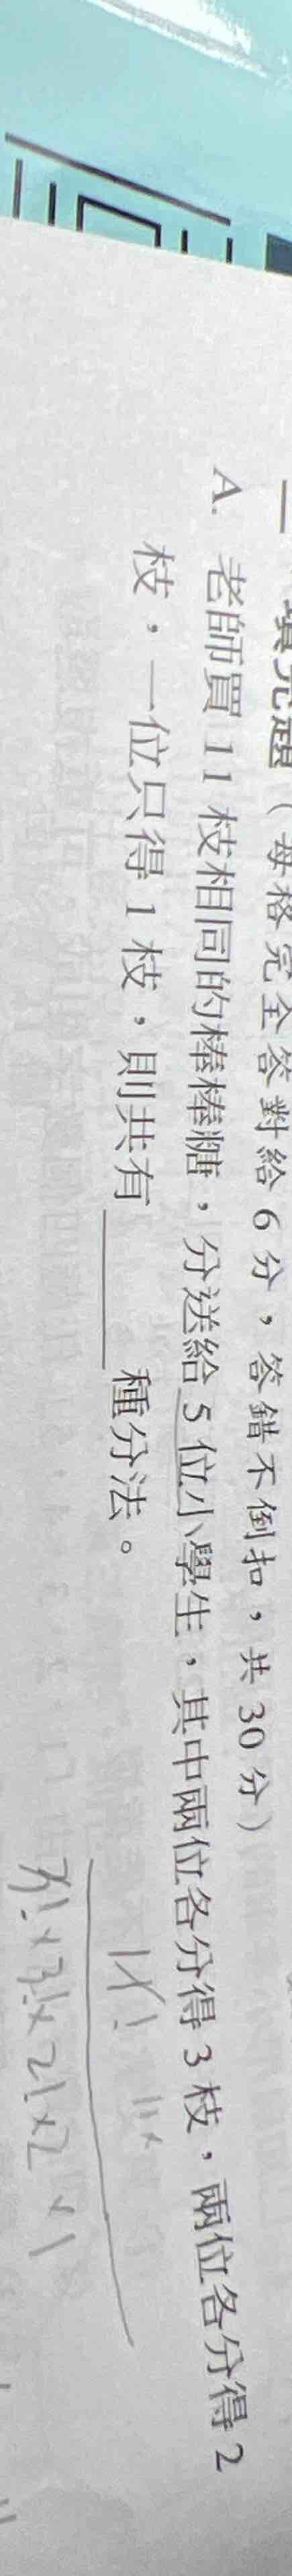 一、填充題（每格完全答對給 6 分，答錯不倒扣，共 30 分）
A. 老師買 11 枝相同的棒棒糖，分送給 5 位小學生，其中兩位各分得 3 枝，兩位各分得 2
枝，一位只得 1 枝，則共有____種分法。
3! × 3! × 2! × 2 × 1